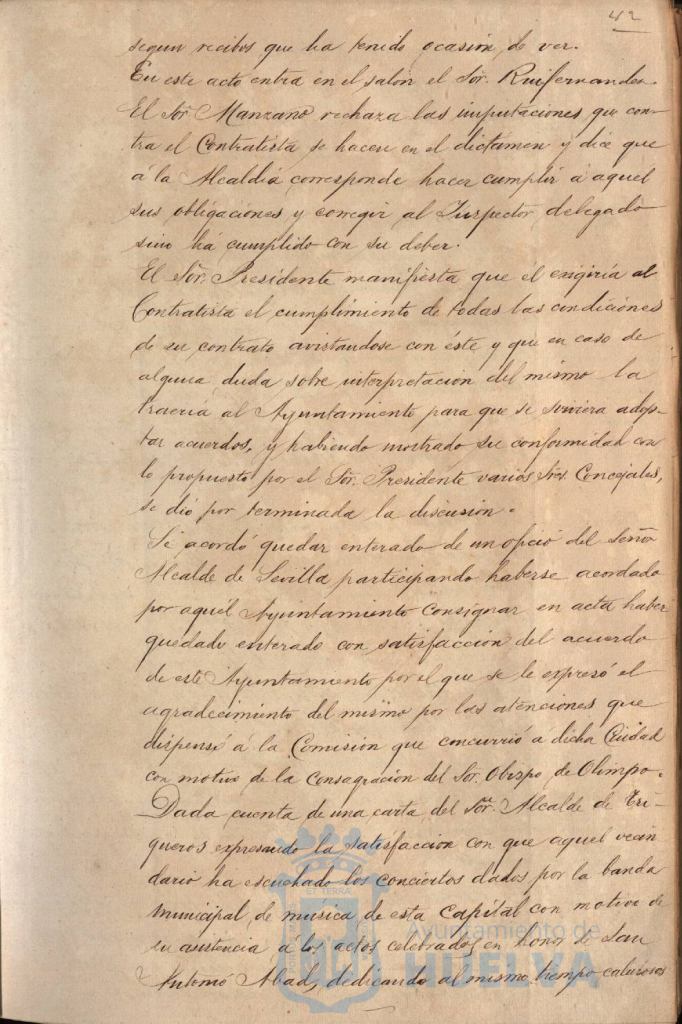 42
segun recibos que ha tenido ocasión de ver.
En este acto entra en el salón el Sor. Ruifernandez.
El Sor Manzano rechaza las imputaciones que con-
tra el Contratista se hacen en el dictamen y dice que
á la Alcaldia corresponde hacer cumplir á aquel
sus obligaciones y corregir al Inspector delegado
sino há cumplido con su deber.
El Sor. Presidente manifiesta que él exigiria al
Contratista el cumplimiento de todas las condiciones
de su contrato avistandose con éste y que en caso de
alguna duda sobre interpretacion del mismo la
traeria al Ayuntamiento para que se sirviera adop-
tar acuerdos, y habiendo mostrado su conformidad con
lo propuesto por el Sor. Presidente varios Sres. Concejales,
se dió por terminada la discusion.
Se acordó quedar enterado de un oficio del Señor
Alcalde de Sevilla participando haberse acordado
por aquél Ayuntamiento consignar en acta haber
quedado enterado con satisfaccion del acuerdo
de este Ayuntamiento por el que se le expresó el
agradecimiento del mismo por las atenciones que
dispensó á la Comision que concurrió a dicha Ciudad
con motivo de la Consagracion del Sor. Obispo de Olimpo.
Dada cuenta de una carta del Sor. Alcalde de Tri-
gueros expresando la satisfaccion con que aquel vecin
dario ha escuchado los conciertos dados por la banda
municipal de musica de esta Capital con motivo de
su asistencia á los actos celebrados en honor de San
Antonio Abad, dedicando al mismo tiempo calurosos
Ayuntamiento de
HUELVA